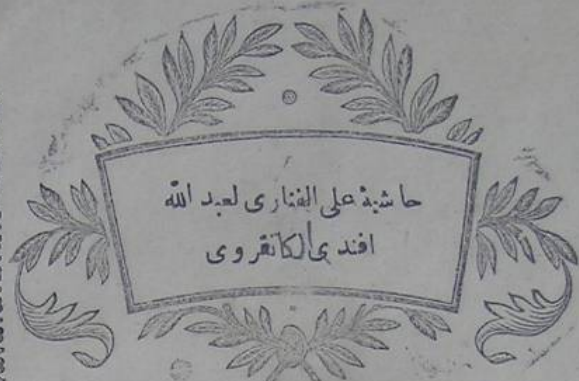 حاشية على الفنارى لعبد الله
افندى الكانقروى